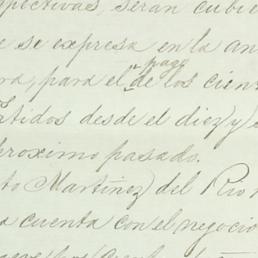 spectivas, serán cubie
e se expresa en la an
ra, para el pago de los cient
tidos desde el diez y
próximo pasado.
to Martinez del Rio
a cuenta con el negocio